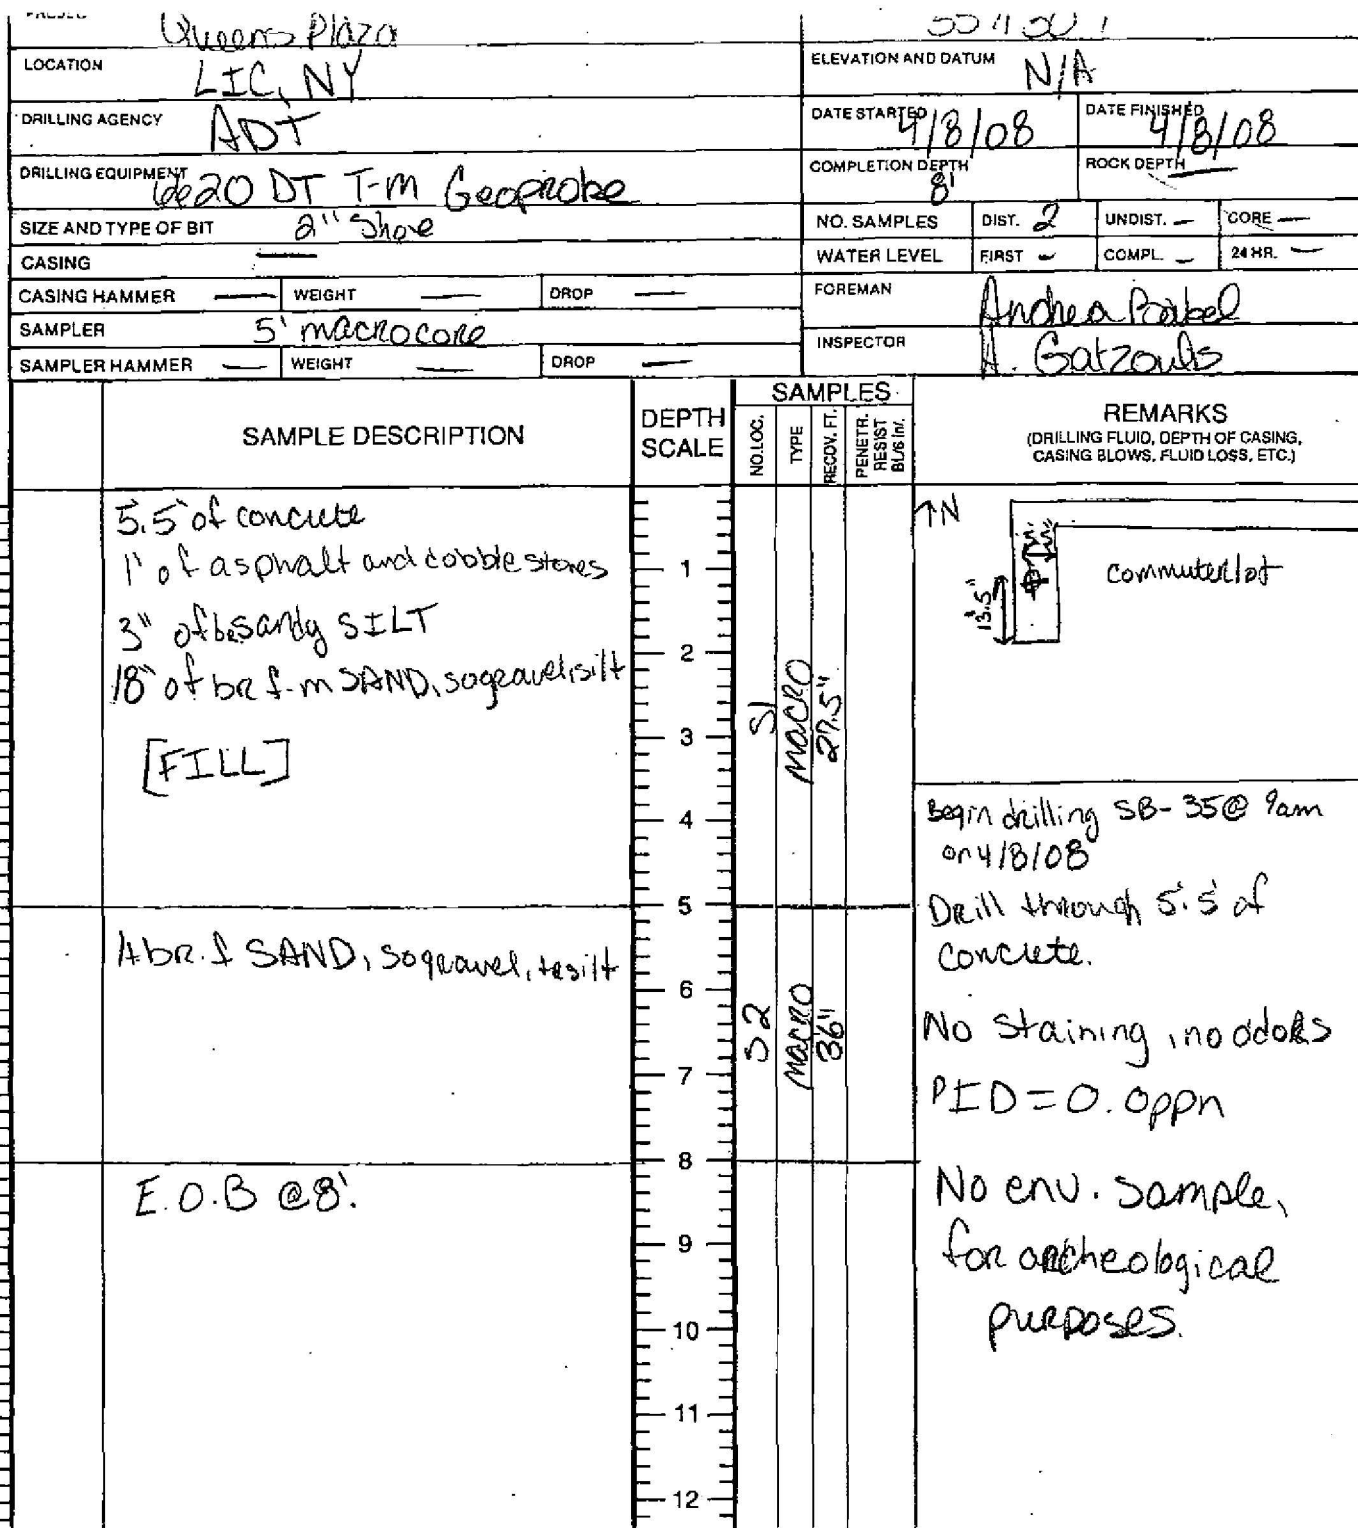 Queens Plaza
LOCATION LIC, NY
ELEVATION AND DATUM N/A
DRILLING AGENCY ADT
DATE STARTED 4/8/08 DATE FINISHED 4/8/08
DRILLING EQUIPMENT 6620 DT T-M Geoprobe
COMPLETION DEPTH 8' ROCK DEPTH —
SIZE AND TYPE OF BIT 2" Shoe
NO. SAMPLES DIST. 2 UNDIST. — CORE —
CASING —
WATER LEVEL FIRST — COMPL. — 24 HR. —
CASING HAMMER — WEIGHT — DROP —
FOREMAN Andrea
SAMPLER 5' macrocore
INSPECTOR A. Gatzoulis
SAMPLER HAMMER — WEIGHT — DROP —
SAMPLE DESCRIPTION
DEPTH SCALE
SAMPLES
NO.LOC.
TYPE
RECOV. FT.
PENETR. RESIST BL/6 in/.
REMARKS
(DRILLING FLUID, DEPTH OF CASING,
CASING BLOWS, FLUID LOSS, ETC.)
5.5" of concrete
1" of asphalt and cobble stones
3" of br sandy SILT
18" of br f-m SAND, so gravel, silt
[FILL]
S1 MACRO 27.5"
↑N
commuter lot
13.5"
1
2
3
4
5
Begin drilling SB-35 @ 9am
on 4/8/08
Drill through 5.5" of
concrete.
lt br. f SAND, so gravel, tr silt
S2 MACRO 36"
6
7
8
No staining, no odors
PID = 0.0ppm
E.O.B @ 8'.
No env. sample,
for archeological
purposes.
9
10
11
12